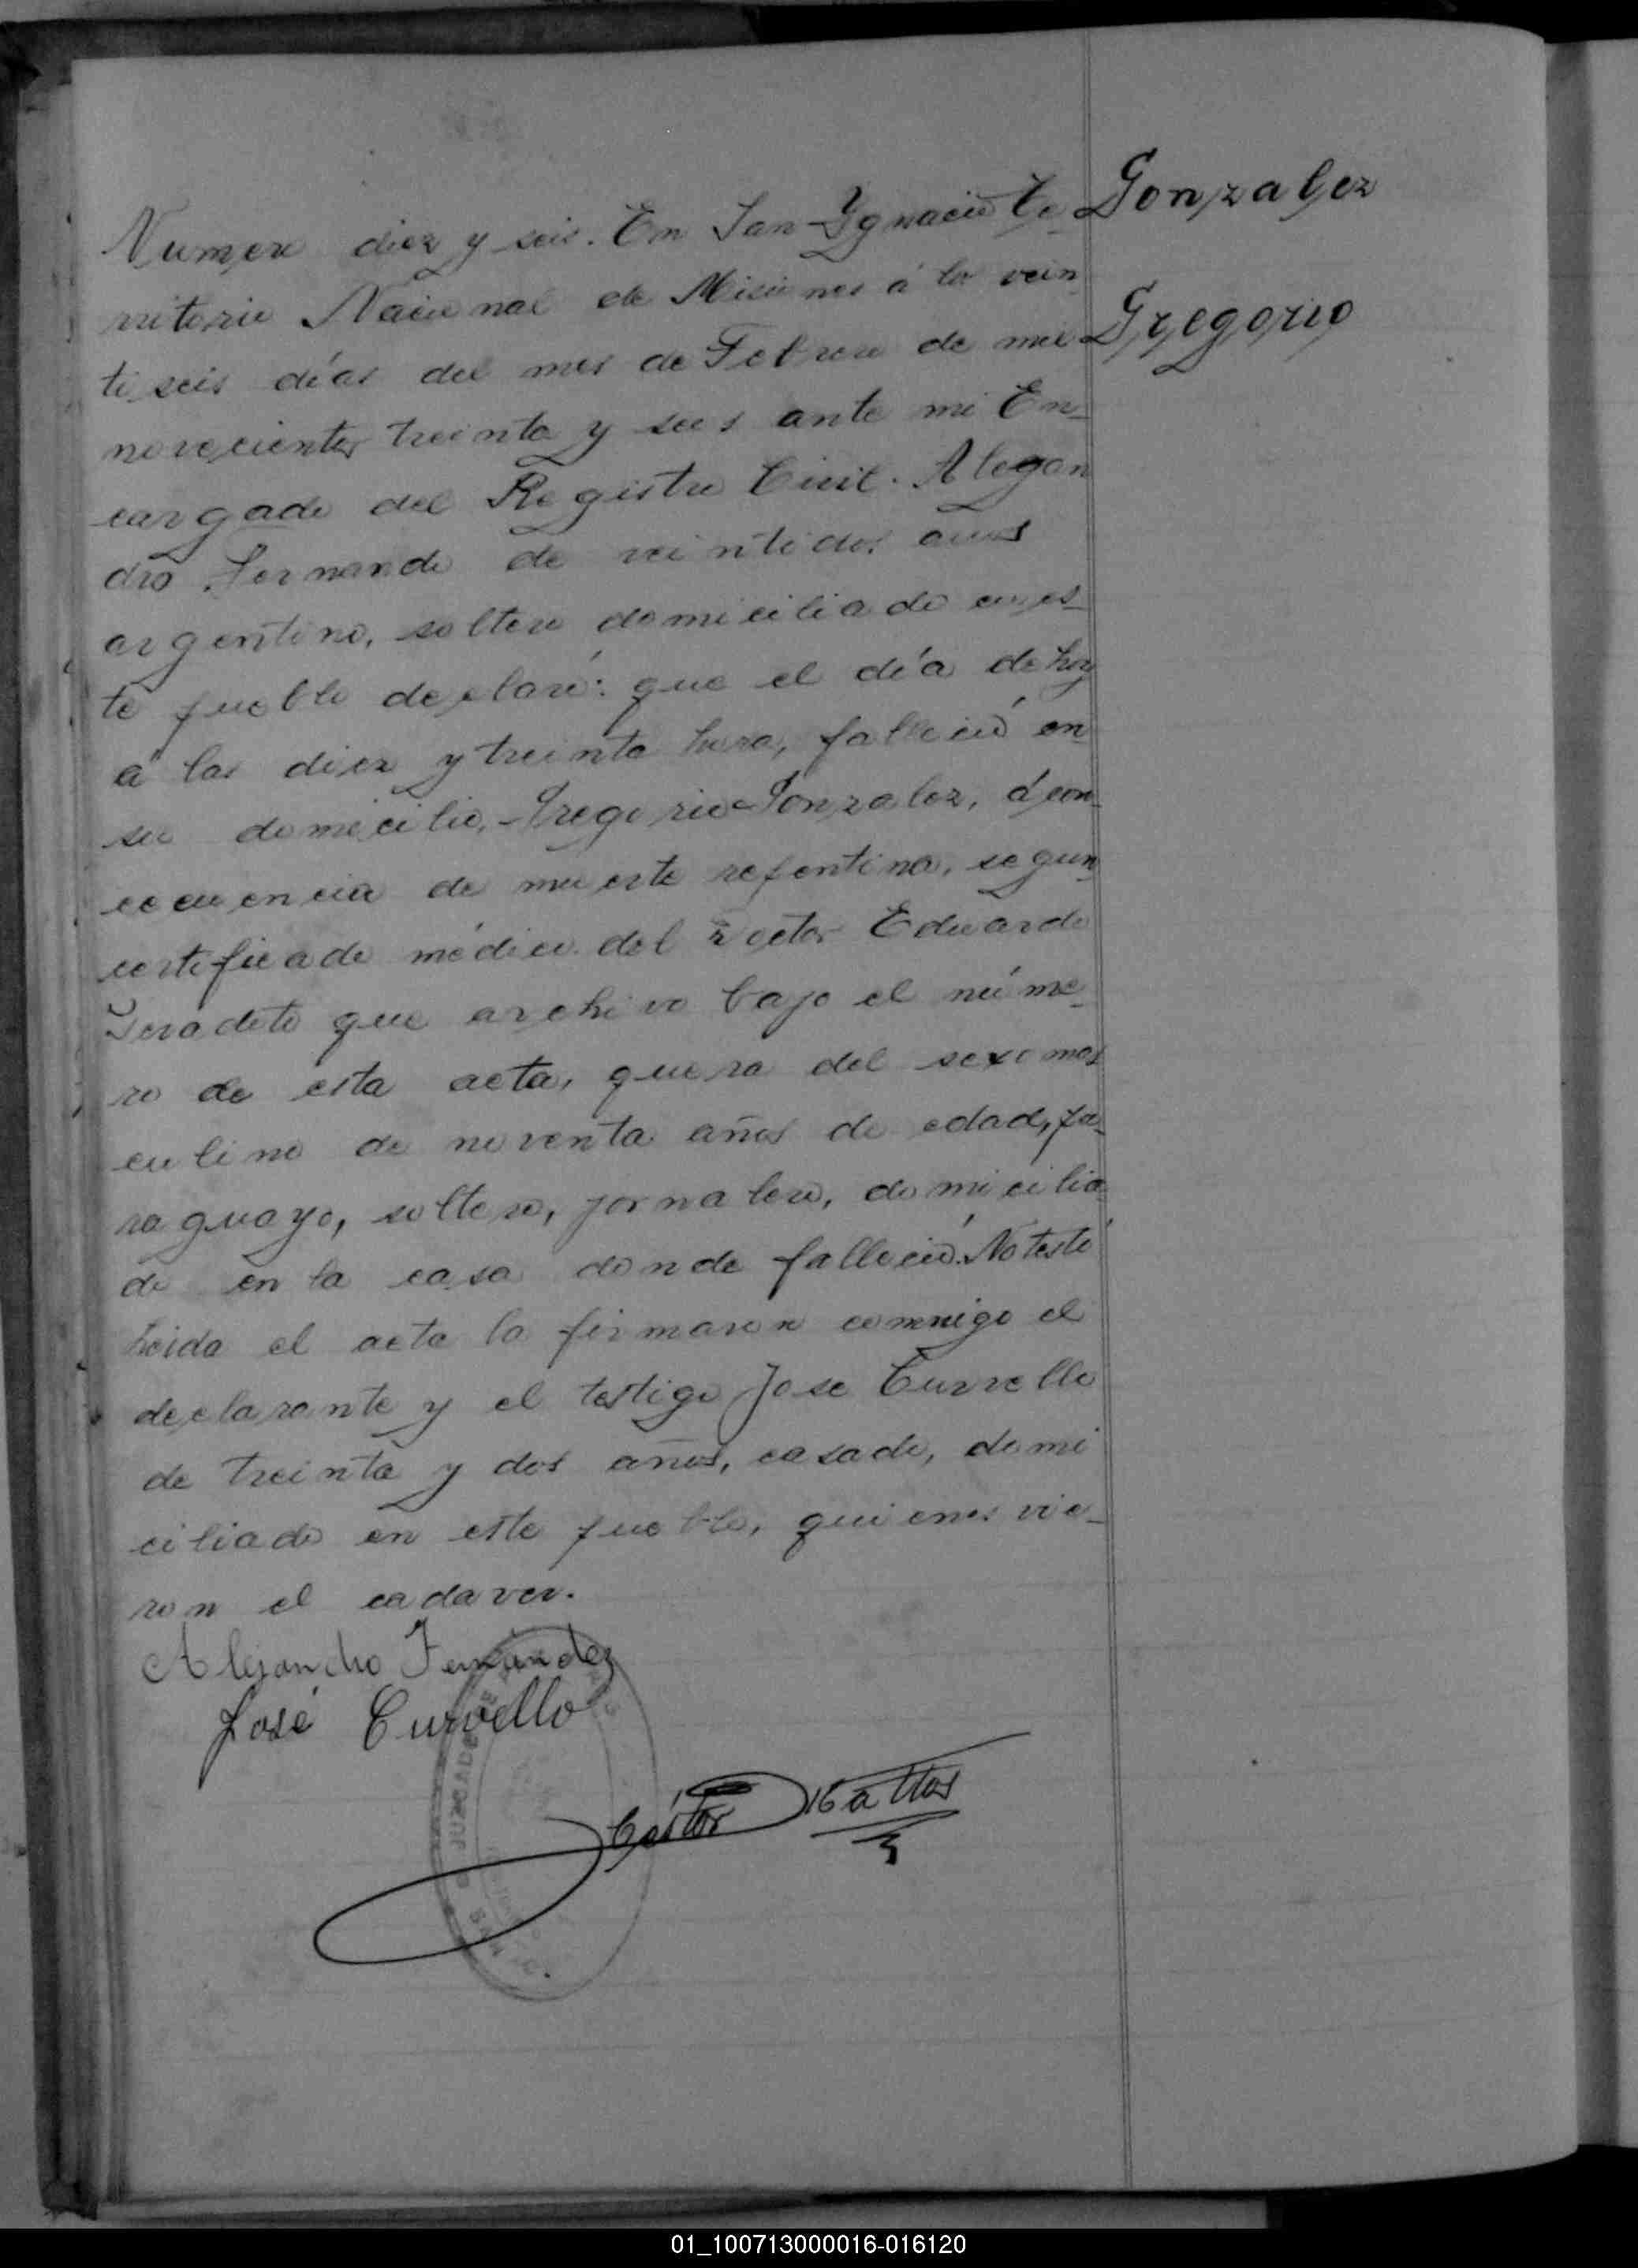 Gonzalez
Gregorio
Numero diez y seis. En San Ygnacio Te-
rritorio Nacional de Misiones á los vein
tiseis días del mes de Febrero de mil
novecientos treinta y seis ante mi En-
cargado del Registro Civil. Alegan
dro Fernande de veintidos años
argentino, soltero domiciliado en es-
te pueblo declaró: que el día de hoy
a las diez y treinta hora, falleció en
su domicilio, Gregorio Gonzalez, á con-
cecuencia de muerte repentina, segun
certificado médico del Doctor Eduardo
que archivo bajo el núme-
ro de esta acta, quera del sexo mas
culino de noventa años de edad, pa-
raguayo, soltero, jornalero, domicilia
do en la casa donde falleció. No testó
leida el acta la firmaron conmigo el
declarante y el testigo Jose Curvello
de treinta y dos años, casado, domi
ciliado en este pueblo, quienes vie-
ron el cadaver.
Alejandro Fernandez
José Curvello
JUZGADO DE PAZ
Cástor Battos
01_100713000016-016120